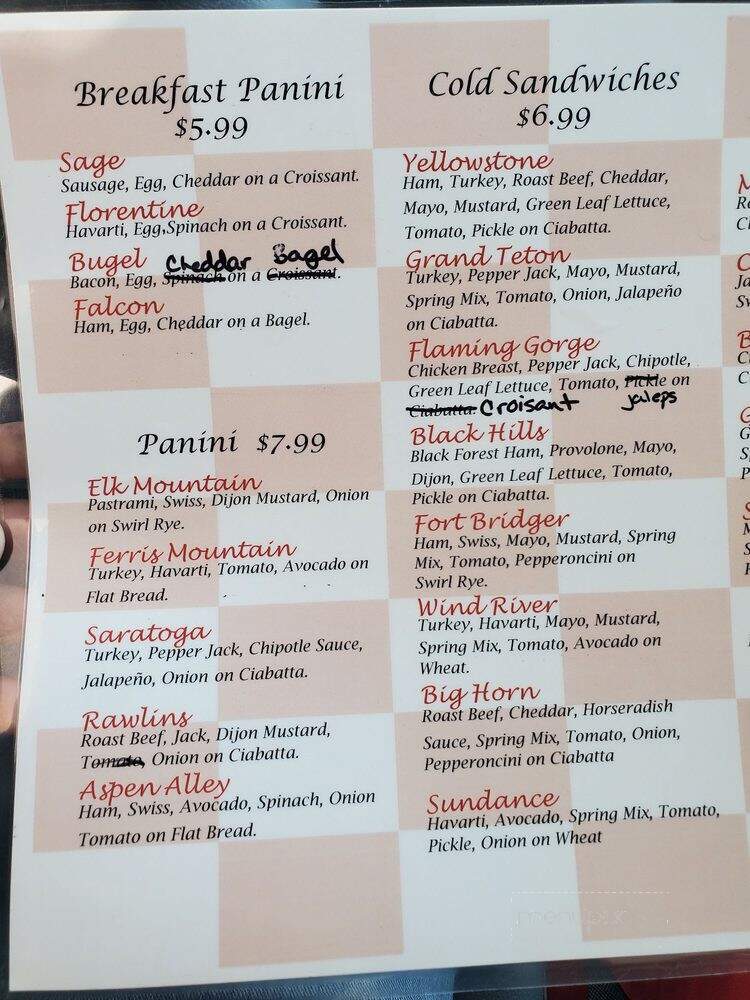 Breakfast Panini
$5.99
Sage
Sausage, Egg, Cheddar on a Croissant.
Florentine
Havarti, Egg,Spinach on a Croissant.
Bugel Cheddar Bagel
Bacon, Egg, Spinach on a Croissant.
Falcon
Ham, Egg, Cheddar on a Bagel.
Panini $7.99
Elk Mountain
Pastrami, Swiss, Dijon Mustard, Onion
on Swirl Rye.
Ferris Mountain
Turkey, Havarti, Tomato, Avocado on
Flat Bread.
Saratoga
Turkey, Pepper Jack, Chipotle Sauce,
Jalapeño, Onion on Ciabatta.
Rawlins
Roast Beef, Jack, Dijon Mustard,
Tomato, Onion on Ciabatta.
Aspen Alley
Ham, Swiss, Avocado, Spinach, Onion
Tomato on Flat Bread.
Cold Sandwiches
$6.99
Yellowstone
Ham, Turkey, Roast Beef, Cheddar,
Mayo, Mustard, Green Leaf Lettuce,
Tomato, Pickle on Ciabatta.
Grand Teton
Turkey, Pepper Jack, Mayo, Mustard,
Spring Mix, Tomato, Onion, Jalapeño
on Ciabatta.
Flaming Gorge
Chicken Breast, Pepper Jack, Chipotle,
Green Leaf Lettuce, Tomato, Pickle on
Ciabatta. Croisant jaleps
Black Hills
Black Forest Ham, Provolone, Mayo,
Dijon, Green Leaf Lettuce, Tomato,
Pickle on Ciabatta.
Fort Bridger
Ham, Swiss, Mayo, Mustard, Spring
Mix, Tomato, Pepperoncini on
Swirl Rye.
Wind River
Turkey, Havarti, Mayo, Mustard,
Spring Mix, Tomato, Avocado on
Wheat.
Big Horn
Roast Beef, Cheddar, Horseradish
Sauce, Spring Mix, Tomato, Onion,
Pepperoncini on Ciabatta
Sundance
Havarti, Avocado, Spring Mix, Tomato,
Pickle, Onion on Wheat